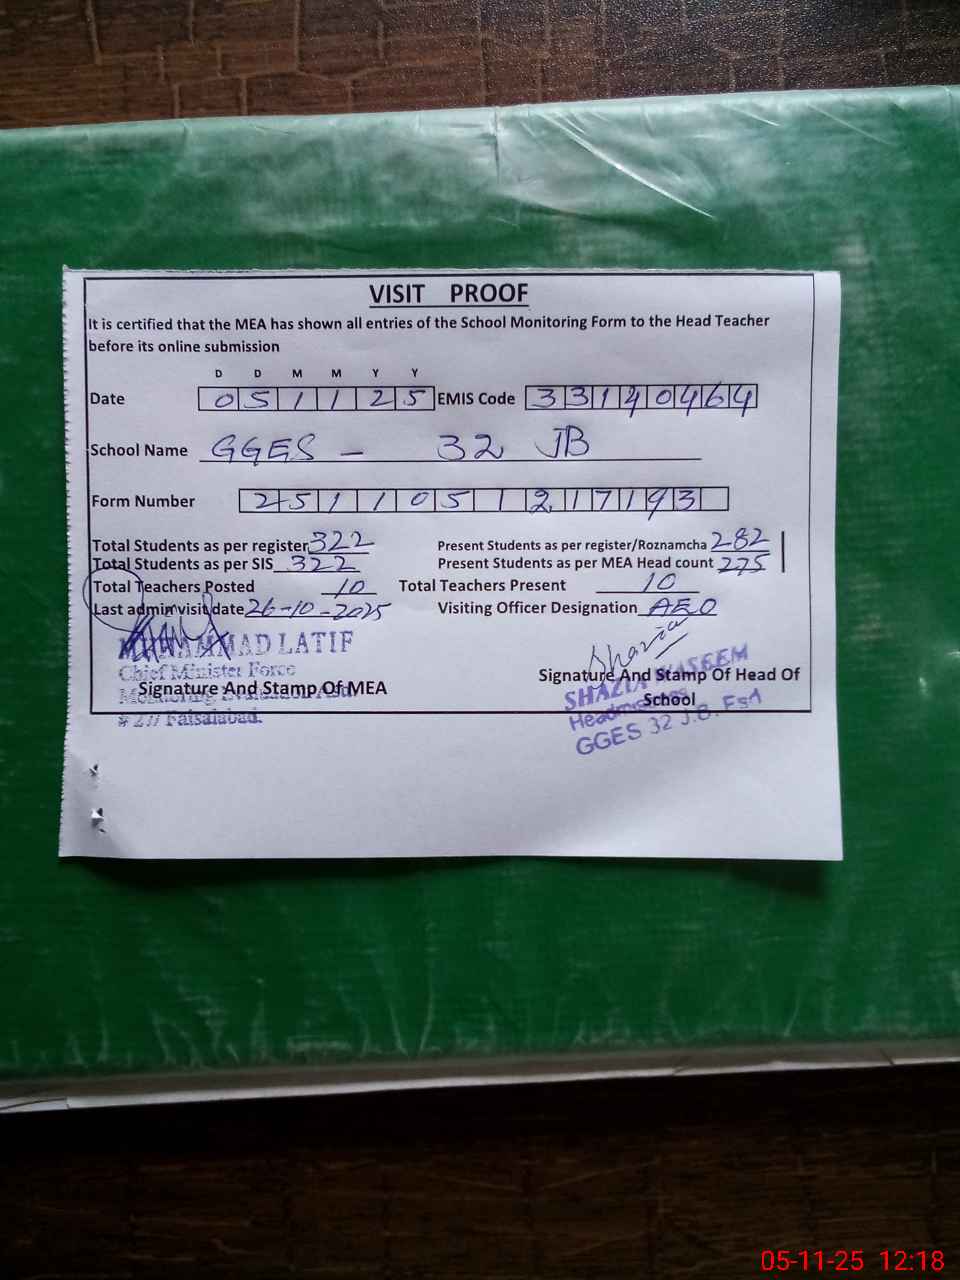 VISIT PROOF
It is certified that the MEA has shown all entries of the School Monitoring Form to the Head Teacher
before its online submission
D D M M Y Y
Date 051125 EMIS Code 33140464
School Name GGES - 32 JB
Form Number 251105121793
Total Students as per register 322 Present Students as per register/Roznamcha 282
Total Students as per SIS 322 Present Students as per MEA Head count 275
Total Teachers Posted 10 Total Teachers Present 10
Last admin visit date 26-10-2025 Visiting Officer Designation AEO
MUHAMMAD LATIF
Chief Minister Force
Monitoring Evaluation
# 277 Faisalabad.
Signature And Stamp Of MEA
Shazia
Signature And Stamp Of Head Of
School
SHAZIA WASEEM
Headmistress
GGES 32 J.B. FSA
05-11-25 12:18